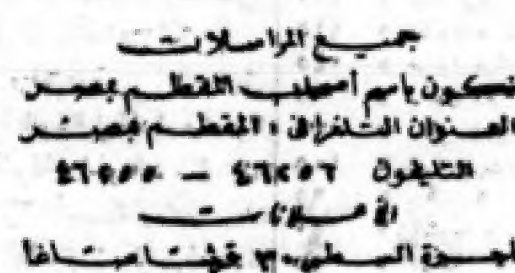 جميع المراسلات
تكون باسم أصحاب المقطم بمصر
العنوان التلغرافى : المقطم بمصر
التليفون ٤٦٢٥٦ —
الاعلانات
أجرة السطر ٣٠ قرشا صاغا